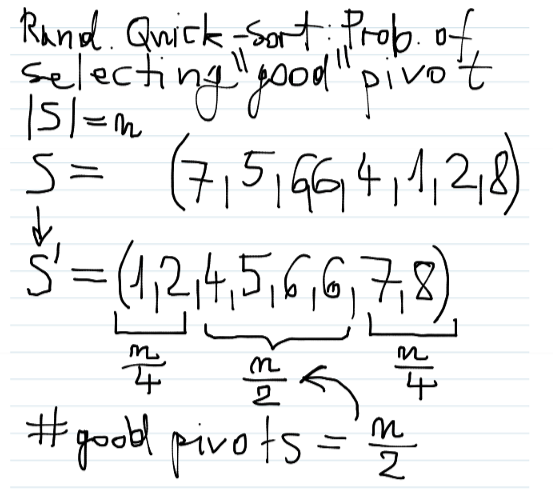 Rand. Quick-Sort: Prob. of
selecting "good" pivot
|S|=n
S = (7,5,66,4,1,2,8)
↓
S' = (1,2,4,5,6,6,7,8)
n/4 n/2 n/4
#good pivots = n/2